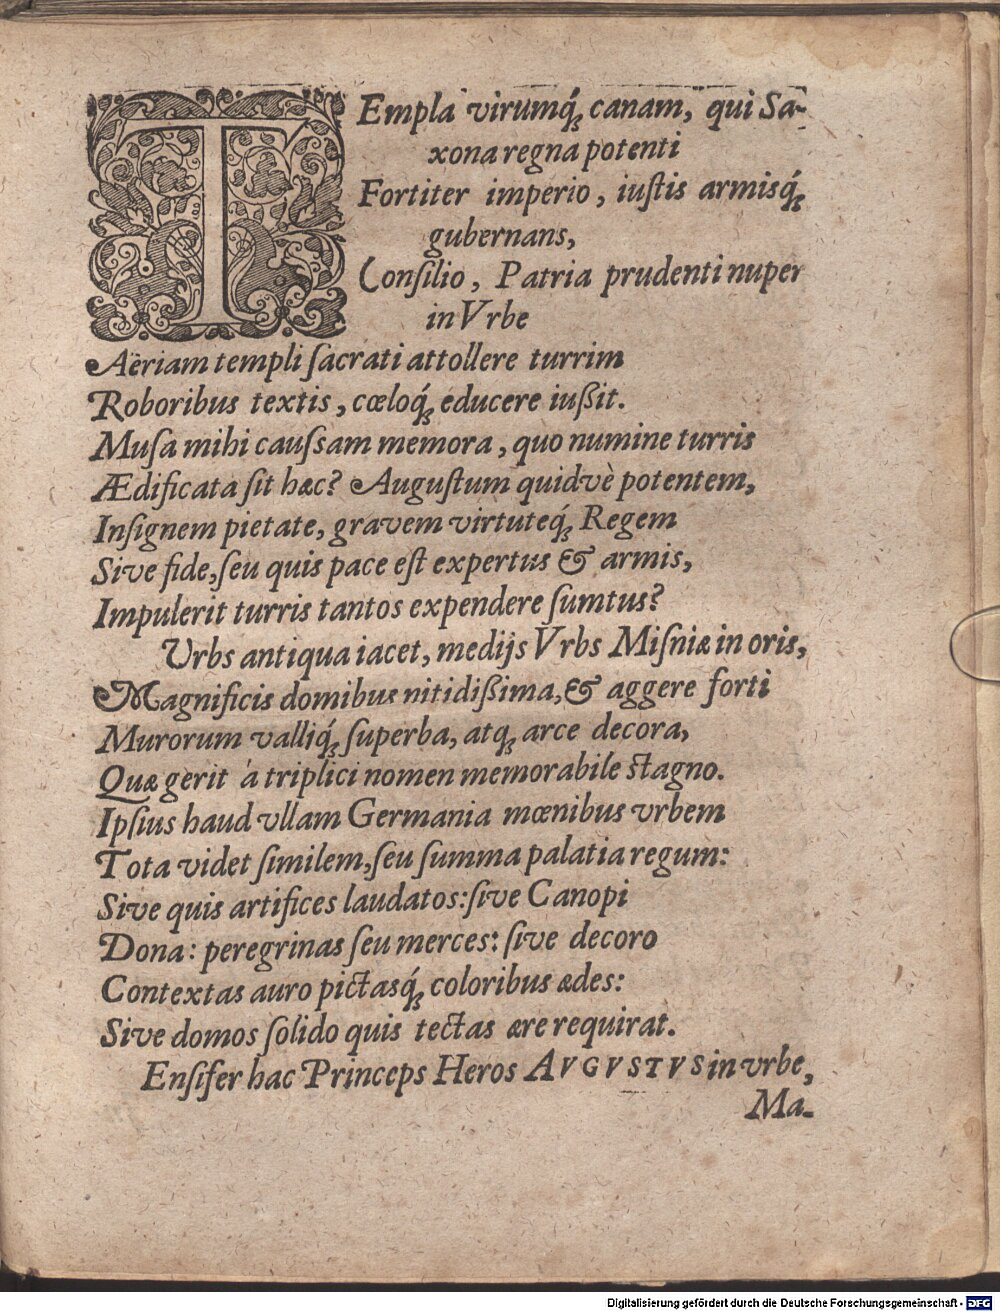 TEmpla virumq́ꝫ canam, qui Sa-
xona regna potenti
Fortiter imperio, iuſtis armisq́ꝫ
gubernans,
Conſilio, Patria prudenti nuper
in Vrbe
Aëriam templi ſacrati attollere turrim
Roboribus textis, cœloq́ꝫ educere iußit.
Muſa mihi cauſsam memora, quo numine turris
Ædificata ſit hæc? Auguſtum quidvè potentem,
Inſignem pietate, gravem virtuteq́ꝫ Regem
Sive fide, ſeu quis pace eſt expertus & armis,
Impulerit turris tantos expendere ſumtus?
Urbs antiqua iacet, medijs Vrbs Miſniæ in oris,
Magnificis domibus nitidißima, & aggere forti
Murorum valliq́ꝫ ſuperba, atqꝫ arce decora,
Quæ gerit à triplici nomen memorabile ſtagno.
Ipſius haud vllam Germania mœnibus vrbem
Tota videt ſimilem, ſeu ſumma palatia regum:
Sive quis artifices laudatos: ſive Canopi
Dona: peregrinas ſeu merces: ſive decoro
Contextas auro pictasq́ꝫ coloribus ædes:
Sive domos ſolido quis tectas ære requirat.
Enſifer hac Princeps Heros AVGVSTVS in vrbe,
Ma-
Digitalisierung gefördert durch die Deutsche Forschungsgemeinschaft - DFG